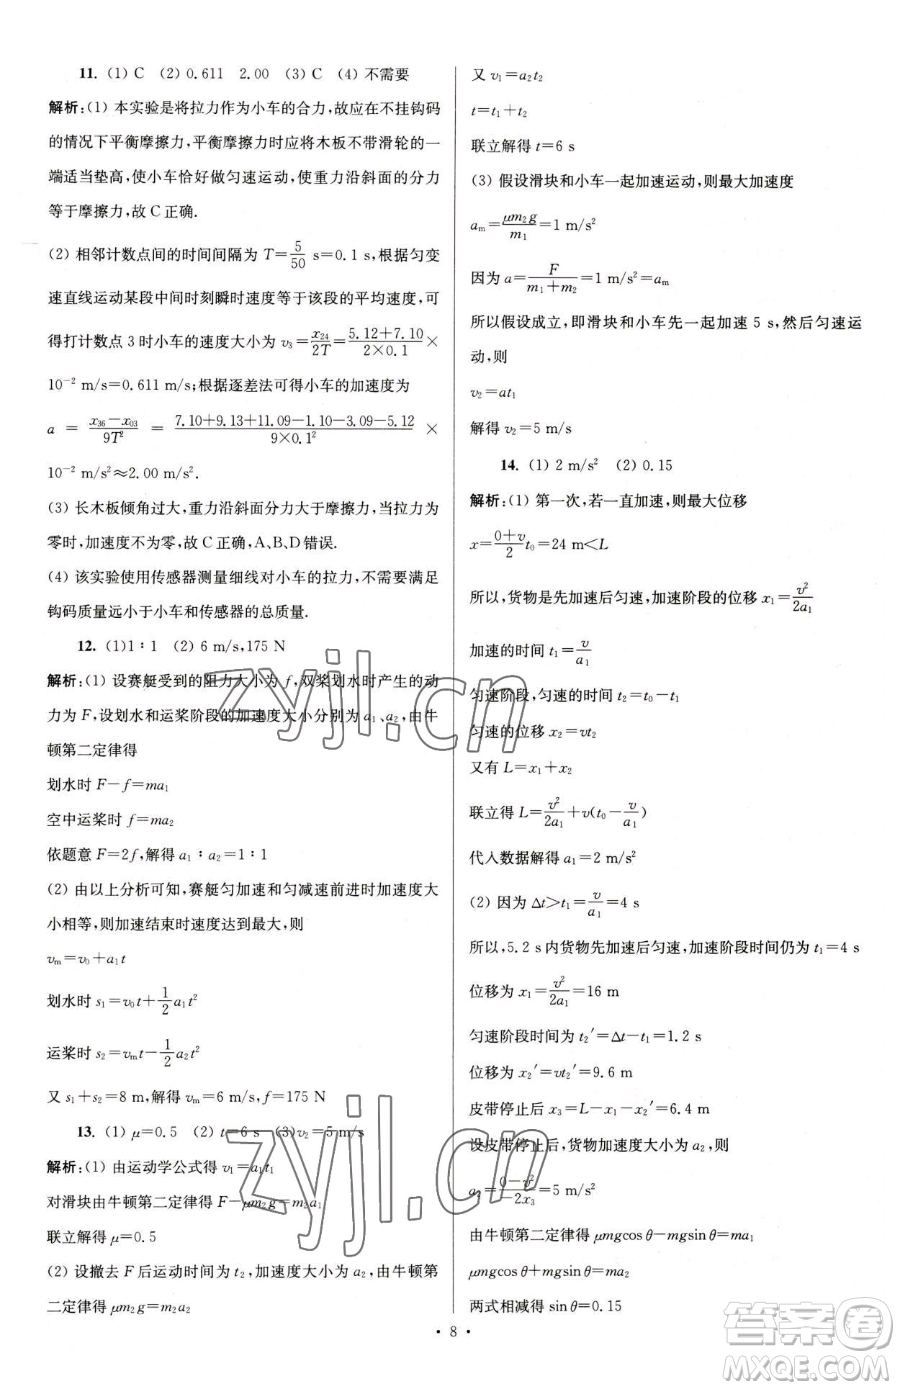 11. (1) C (2) 0.611 2.00 (3) C (4) 不需要
解析:(1) 本实验是将拉力作为小车的合力,故应在不挂钩码
的情况下平衡摩擦力,平衡摩擦力时应将木板不带滑轮的一
端适当垫高,使小车恰好做匀速运动,使重力沿斜面的分力
等于摩擦力,故 C 正确.
(2) 相邻计数点间的时间间隔为 T=5/50 s=0.1 s,根据匀变
速直线运动某段中间时刻瞬时速度等于该段的平均速度,可
得打计数点 3 时小车的速度大小为 v₃=x₂₄/2T=(5.12+7.10)/(2×0.1)×
10⁻² m/s=0.611 m/s;根据逐差法可得小车的加速度为
a = (x₃₆-x₀₃)/9T² = (7.10+9.13+11.09-1.10-3.09-5.12)/(9×0.1²) ×
10⁻² m/s²≈2.00 m/s².
(3) 长木板倾角过大,重力沿斜面分力大于摩擦力,当拉力为
零时,加速度不为零,故 C 正确,A、B、D 错误.
(4) 该实验使用传感器测量细线对小车的拉力,不需要满足
钩码质量远小于小车和传感器的总质量.
12. (1)1∶1 (2) 6 m/s,175 N
解析:(1) 设赛艇受到的阻力大小为 f,双桨划水时产生的动
力为 F,设划水和运桨阶段的加速度大小分别为 a₁、a₂,由牛
顿第二定律得
划水时 F-f=ma₁
空中运桨时 f=ma₂
依题意 F=2f,解得 a₁∶a₂=1∶1
(2) 由以上分析可知,赛艇匀加速和匀减速前进时加速度大
小相等,则加速结束时速度达到最大,则
vₘ=v₀+a₁t
划水时 s₁=v₀t+1/2 a₁t²
运桨时 s₂=vₘt-1/2 a₂t²
又 s₁+s₂=8 m,解得 vₘ=6 m/s,f=175 N
13. (1) μ=0.5 (2) t=6 s (3)v₂=5 m/s
解析:(1) 由运动学公式得 v₁=a₁t₁
对滑块由牛顿第二定律得 F-μm₂g=m₂a₁
联立解得 μ=0.5
(2) 设撤去 F 后运动时间为 t₂,加速度大小为 a₂,由牛顿第
二定律得 μm₂g=m₂a₂
又 v₁=a₂t₂
t=t₁+t₂
联立解得 t=6 s
(3) 假设滑块和小车一起加速运动,则最大加速度
aₘ=μm₂g/m₁=1 m/s²
因为 a=F/(m₁+m₂)=1 m/s²=aₘ
所以假设成立,即滑块和小车先一起加速 5 s,然后匀速运
动,则
v₂=at₁
解得 v₂=5 m/s
14. (1) 2 m/s² (2) 0.15
解析:(1) 第一次,若一直加速,则最大位移
x=(0+v)/2 t₀=24 m<L
所以,货物是先加速后匀速,加速阶段的位移 x₁=v²/2a₁
加速的时间 t₁=v/a₁
匀速阶段,匀速的时间 t₂=t₀-t₁
匀速的位移 x₂=vt₂
又有 L=x₁+x₂
联立得 L=v²/2a₁+v(t₀-v/a₁)
代入数据解得 a₁=2 m/s²
(2) 因为 Δt>t₁=v/a₁=4 s
所以,5.2 s内货物先加速后匀速,加速阶段时间仍为 t₁=4 s
位移为 x₁=v²/2a₁=16 m
匀速阶段时间为 t₂′=Δt-t₁=1.2 s
位移为 x₂′=vt₂′=9.6 m
皮带停止后 x₃=L-x₁-x₂′=6.4 m
设皮带停止后,货物加速度大小为 a₂,则
a₂=(0-v²)/(-2x₃)=5 m/s²
由牛顿第二定律得 μmgcos θ-mgsin θ=ma₁
μmgcos θ+mgsin θ=ma₂
两式相减得 sin θ=0.15
• 8 •
zyjl.cn
zyjl.cn
答案圈
MXQE.COM